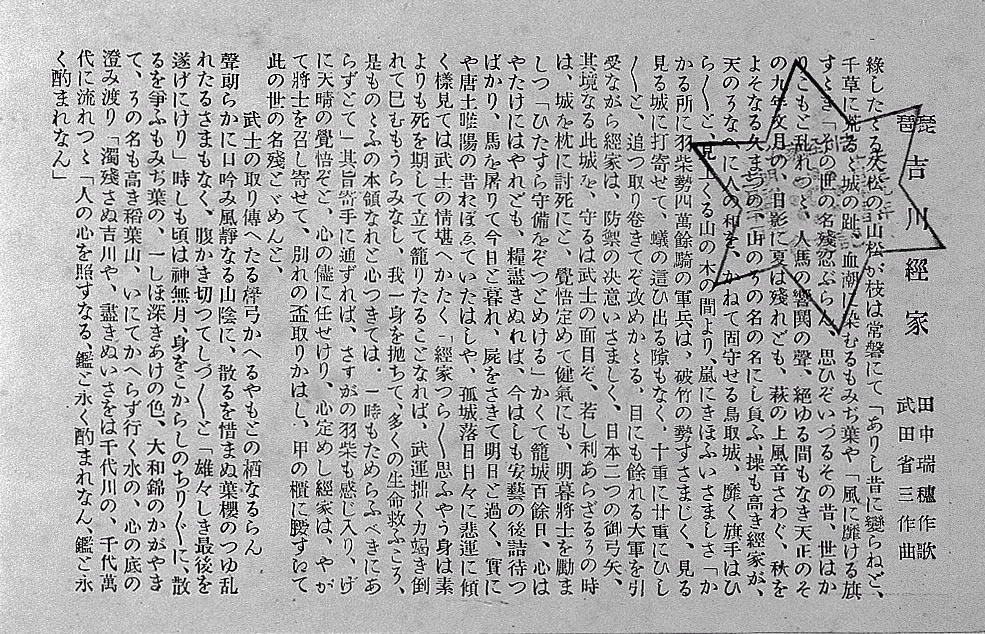 琵琶 吉川經家
田中瑞穗作歌
武田省三作曲
綠したゝる久松の山松が枝は常磐にて「ありし昔に變らねど、
千草に荒るゝ城の趾、血潮に染むるもみぢ葉や「風に靡ける旗
すゝき「その世の名殘忍ぶらん、思ひぞいづるその昔、世はか
りこもと亂れつゝ、人馬の響鬨の聲、絶ゆる間もなき天正のそ
の九年文月の、日影に夏は殘れども、萩の上風音さわぐ、秋を
よそなる久まつの、山のうの名の名にし負ふ、操も高き經家が、
天のうなへに人の和を、かねて固守せる鳥取城、靡く旗手はひ
ら〳〵と、見上ぐる山の木の間より、嵐にきほふいさましさ「か
かる所に羽柴勢四萬餘騎の軍兵は、破竹の勢すさまじく、見る
見る城に打寄せて、蟻の這ひ出る隙もなく、十重に廿重にひし
〳〵と、追つ取り卷きてぞ攻めかゝる、目にも餘れる大軍を引
受ながら經家は、防禦の決意いさましく、日本二つの御弓矢、
其境なる此城を、守るは武士の面目ぞ、若し利あらざるうの時
は、城を枕に討死にと、覺悟定めて健氣にも、明暮將士を勵ま
しつ「ひたすら守備をぞつとめける」かくて籠城百餘日、心は
やたけにはやれども、糧盡きぬれば、今はしも安藝の後詰待つ
ばかり、馬を屠りて今日と暮れ、屍をさきて明日と過ぐ、實に
や唐土睢陽の昔ねぼゑていたはしや、孤城落日日々に悲運に傾
く樣見ては武士の情堪へかたく「經家つら〳〵思ふやう身は素
よりも死を期して立て籠りたることなれば、武運拙く力竭き倒
れて巳むもうらみなし、我一身を拋ちて、多くの生命救ふこう、
是ものゝふの本領なれと心つきては、一時もためらふべきにあ
らずとて」其旨寄手に通ずれば、さすがの羽柴も感じ入り、げ
に天晴の覺悟ぞと、心の儘に任せけり、心定めし經家は、やが
て將士を召し寄せて、別れの盃取りかはし、甲の櫃に腰すゑて
此の世の名殘とゞめんと、
武士の取り傳へたる梓弓かへるやもとの栖なるらん
聲朗らかに口吟み風靜なる山陰に、散るを惜まぬ葉櫻のつゆ亂
れたるさまもなく、腹かき切つてしづ〳〵と「雄々しき最後を
遂げにけり」時しも頃は神無月、身をこからしのちり〴〵に、散
るを爭ふもみぢ葉の、一しほ深きあけの色、大和錦のかがやき
て、うの名も高き稻葉山、いにてかへらず行く水の、心の底の
澄み渡り「濁殘さぬ吉川や、盡きぬいさをは千代川の、千代萬
代に流れつゝ「人の心を照すなる、鑑と永く酌まれなん、鑑と永
く酌まれなん」